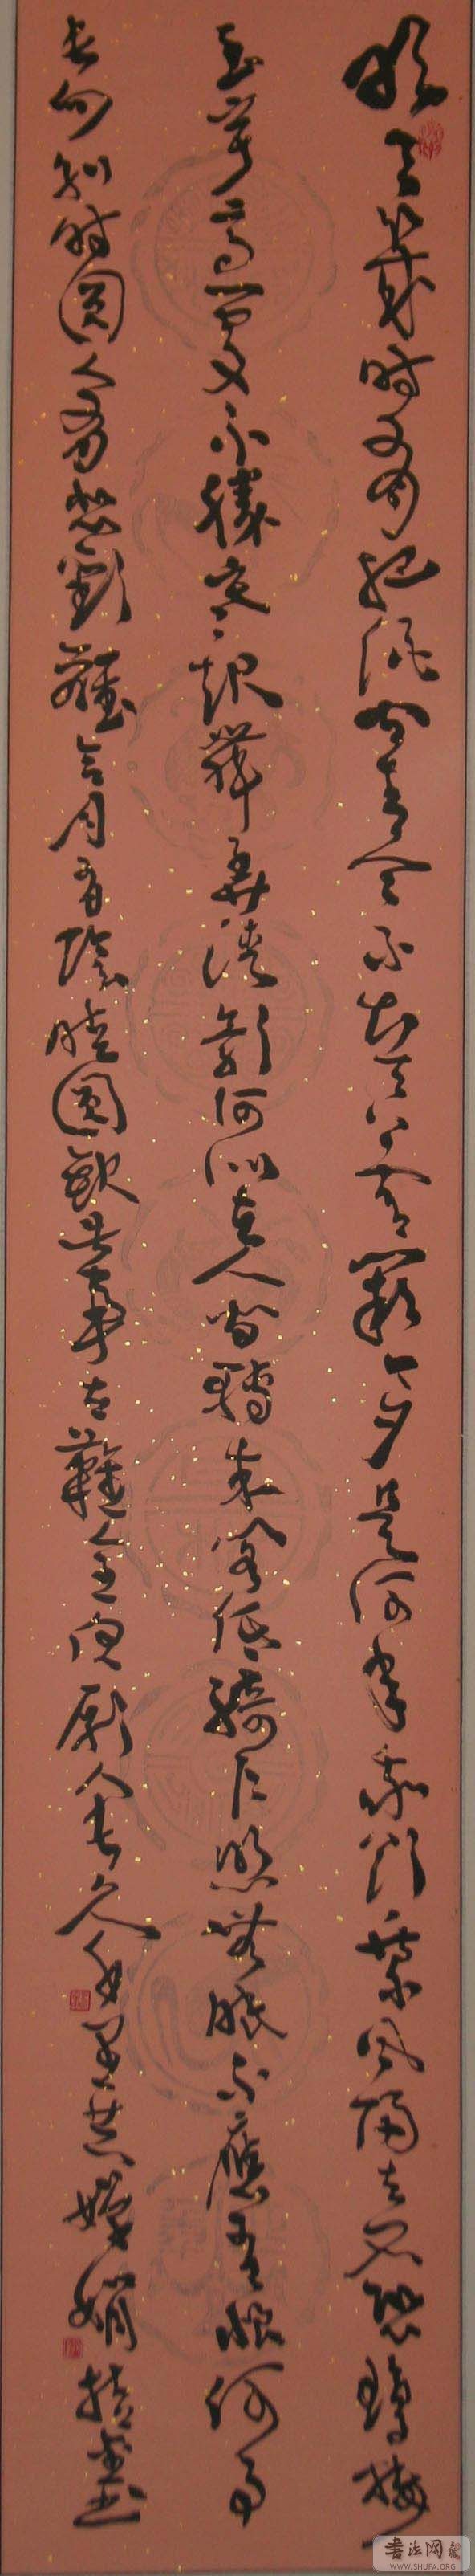 明月幾时有把酒问青天不知天上宫阙今夕是何年我欲乘风归去又恐琼楼
玉宇高处不勝寒起舞弄清影何似在人间轉朱阁低綺户照無眠不應有恨何事
长向别时圆人有悲歡離合月有陰晴圆缺此事古難全但願人长久千里共嬋娟
书法网
WWW.SHUFA.ORG